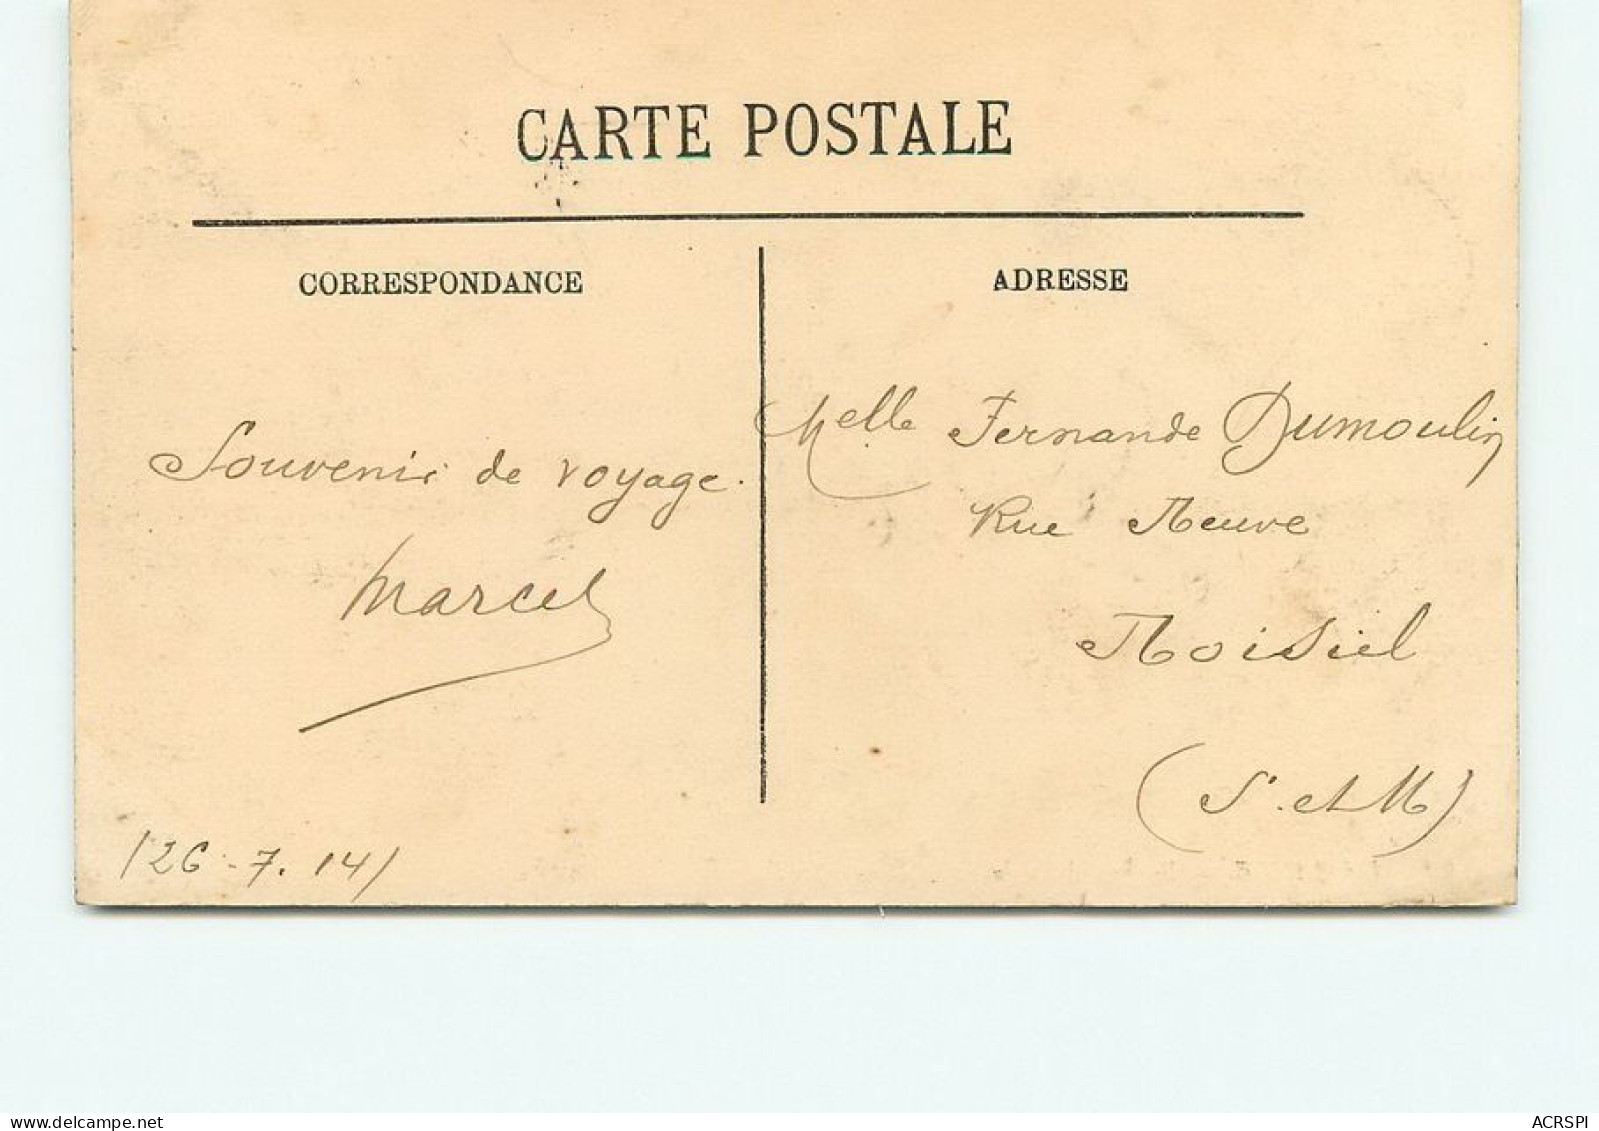 CARTE POSTALE
CORRESPONDANCE
ADRESSE
Souvenir de voyage.
Marcel
/26-7.14/
Melle Fernande Dumoulin
Rue Neuve
Noisiel
(S. et M)
www.delcampe.net
ACRSPI